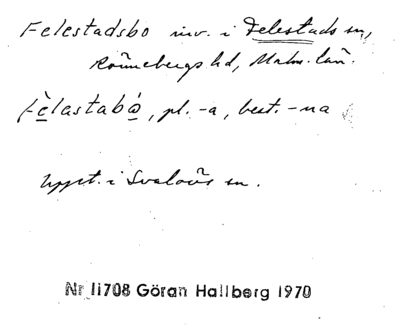 Felestadsbo inv. i Felestads sn,
Rönnebergs hd, Malm. län.
Fèlastabo̍, pl. -a, best. -na
Uppt. i Svalövs sn.
Nr 11708 Göran Hallberg 1970